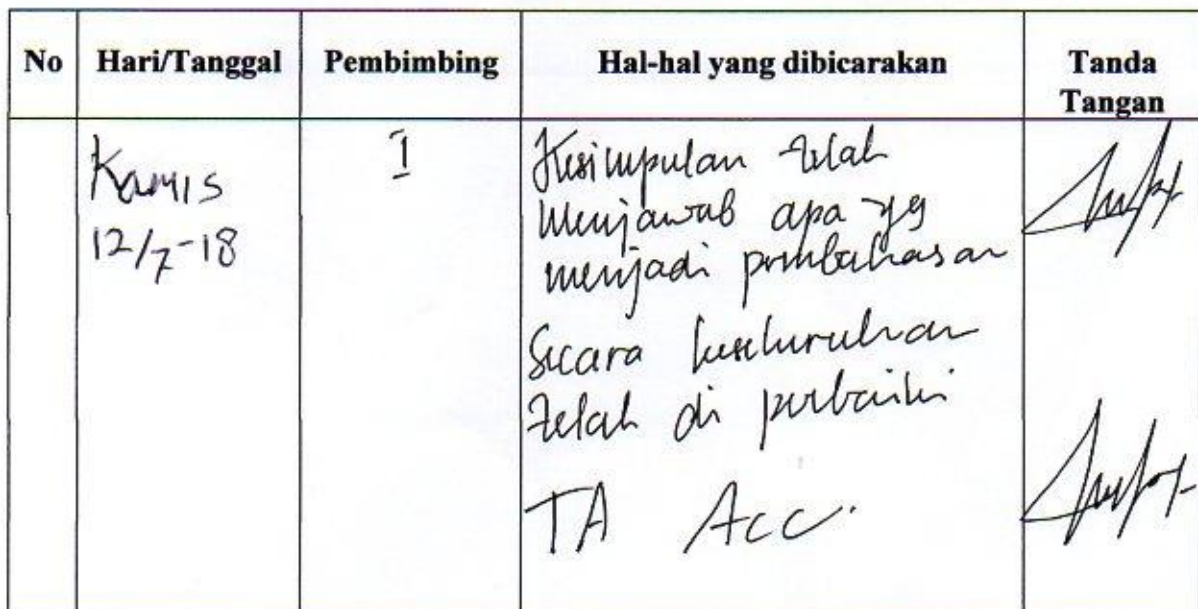 No Hari/Tanggal Pembimbing Hal-hal yang dibicarakan Tanda
Tangan
Kamis I Kesimpulan telah
12/7-18 menjawab apa yg
menjadi pembahasan
Secara keseluruhan
telah di perbaiki
TA Acc.